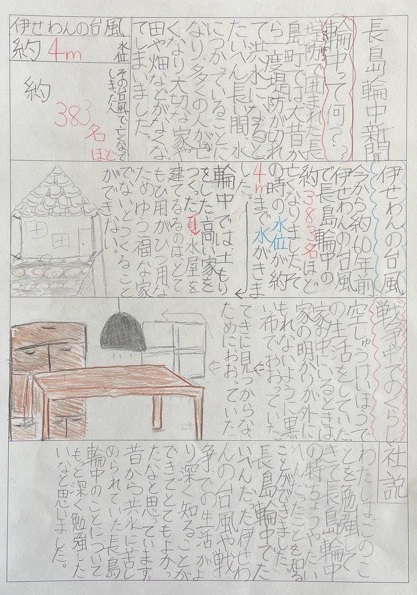 長島輪中新聞
輪中って何？？
堤防で囲まれた長
島町では大昔か
ら度々堤防が切れ
て洪水になると
たいへん長い間水
につかっていることに
なり多くの人が亡
くなり大切な家や
田や畑などがなくなっ
てしまいました。
伊せわんの台風
水位
約4m
その台風で亡くなって
しまった人
約
383名
ほど
伊せわんの台風
今から約60年前
伊せわんの台風
で長島輪中の
約383名ほど
亡くなりました。そ
の時の水位が約
4mまで水がきま
した。
輪中では土もり
をした高い家を
つくった。水屋を
建てるのはとて
もひ用がひつ用な
ためゆう福な家
でないとつくること
ができない。
戦争中でのくらし
空しゅうけいほう
の生活をしていた
家の中にいるときは
家の明かりが外に
もれないように黒
い布でおおっていた。
てきに見つからない
ためにおおっていた
社説
わたしはこのこ
とを勉強して
きて長島輪中
の特ちょうやたい
へんだったことを知る
ことができました。
長島輪中でた
いへんだった伊せわ
んの台風や戦
争での生活がよ
り深く知ることが
できてとてもよかっ
たなと思っています。
昔から洪水に苦し
められていた長島
輪中のことについて
もっと深く勉強した
いなと思いました。